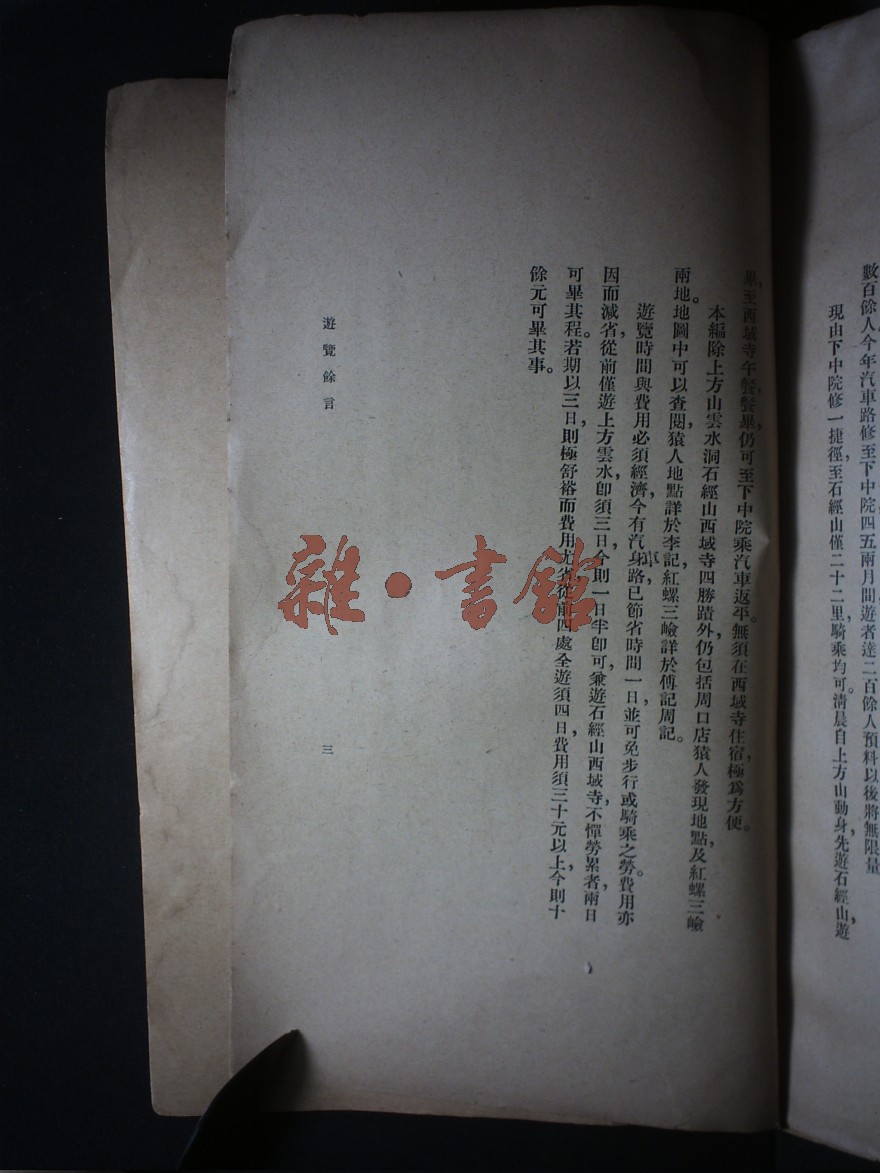 數百餘人今年汽車路修至下中院四五兩月間遊者達二百餘人預料以後將無限量
現由下中院修一捷徑至石經山僅二十二里騎乘均可。清晨自上方山動身先遊石經山遊
畢,至西域寺午餐,餐畢仍可至下中院乘汽車返平。無須在西域寺住宿,極爲方便。
本編除上方山雲水洞石經山西域寺四勝蹟外,仍包括周口店猿人發現地點,及紅螺三嶮
兩地。地圖中可以查閱,猿人地點詳於李記,紅螺三嶮詳於傅記周記。
遊覽時間與費用必須經濟,今有汽車路,已節省時間一日,並可免步行或騎乘之勞。費用亦
因而減省,從前僅遊上方雲水,卽須三日,今則一日半卽可,兼遊石經山西域寺,不憚勞累者,兩日
可畢其程。若期以三日,則極舒裕,而費用尤省,從前四處全遊須四日,費用須三十元以上,今則十
餘元可畢其事。
遊覽餘言
三
雜·書館